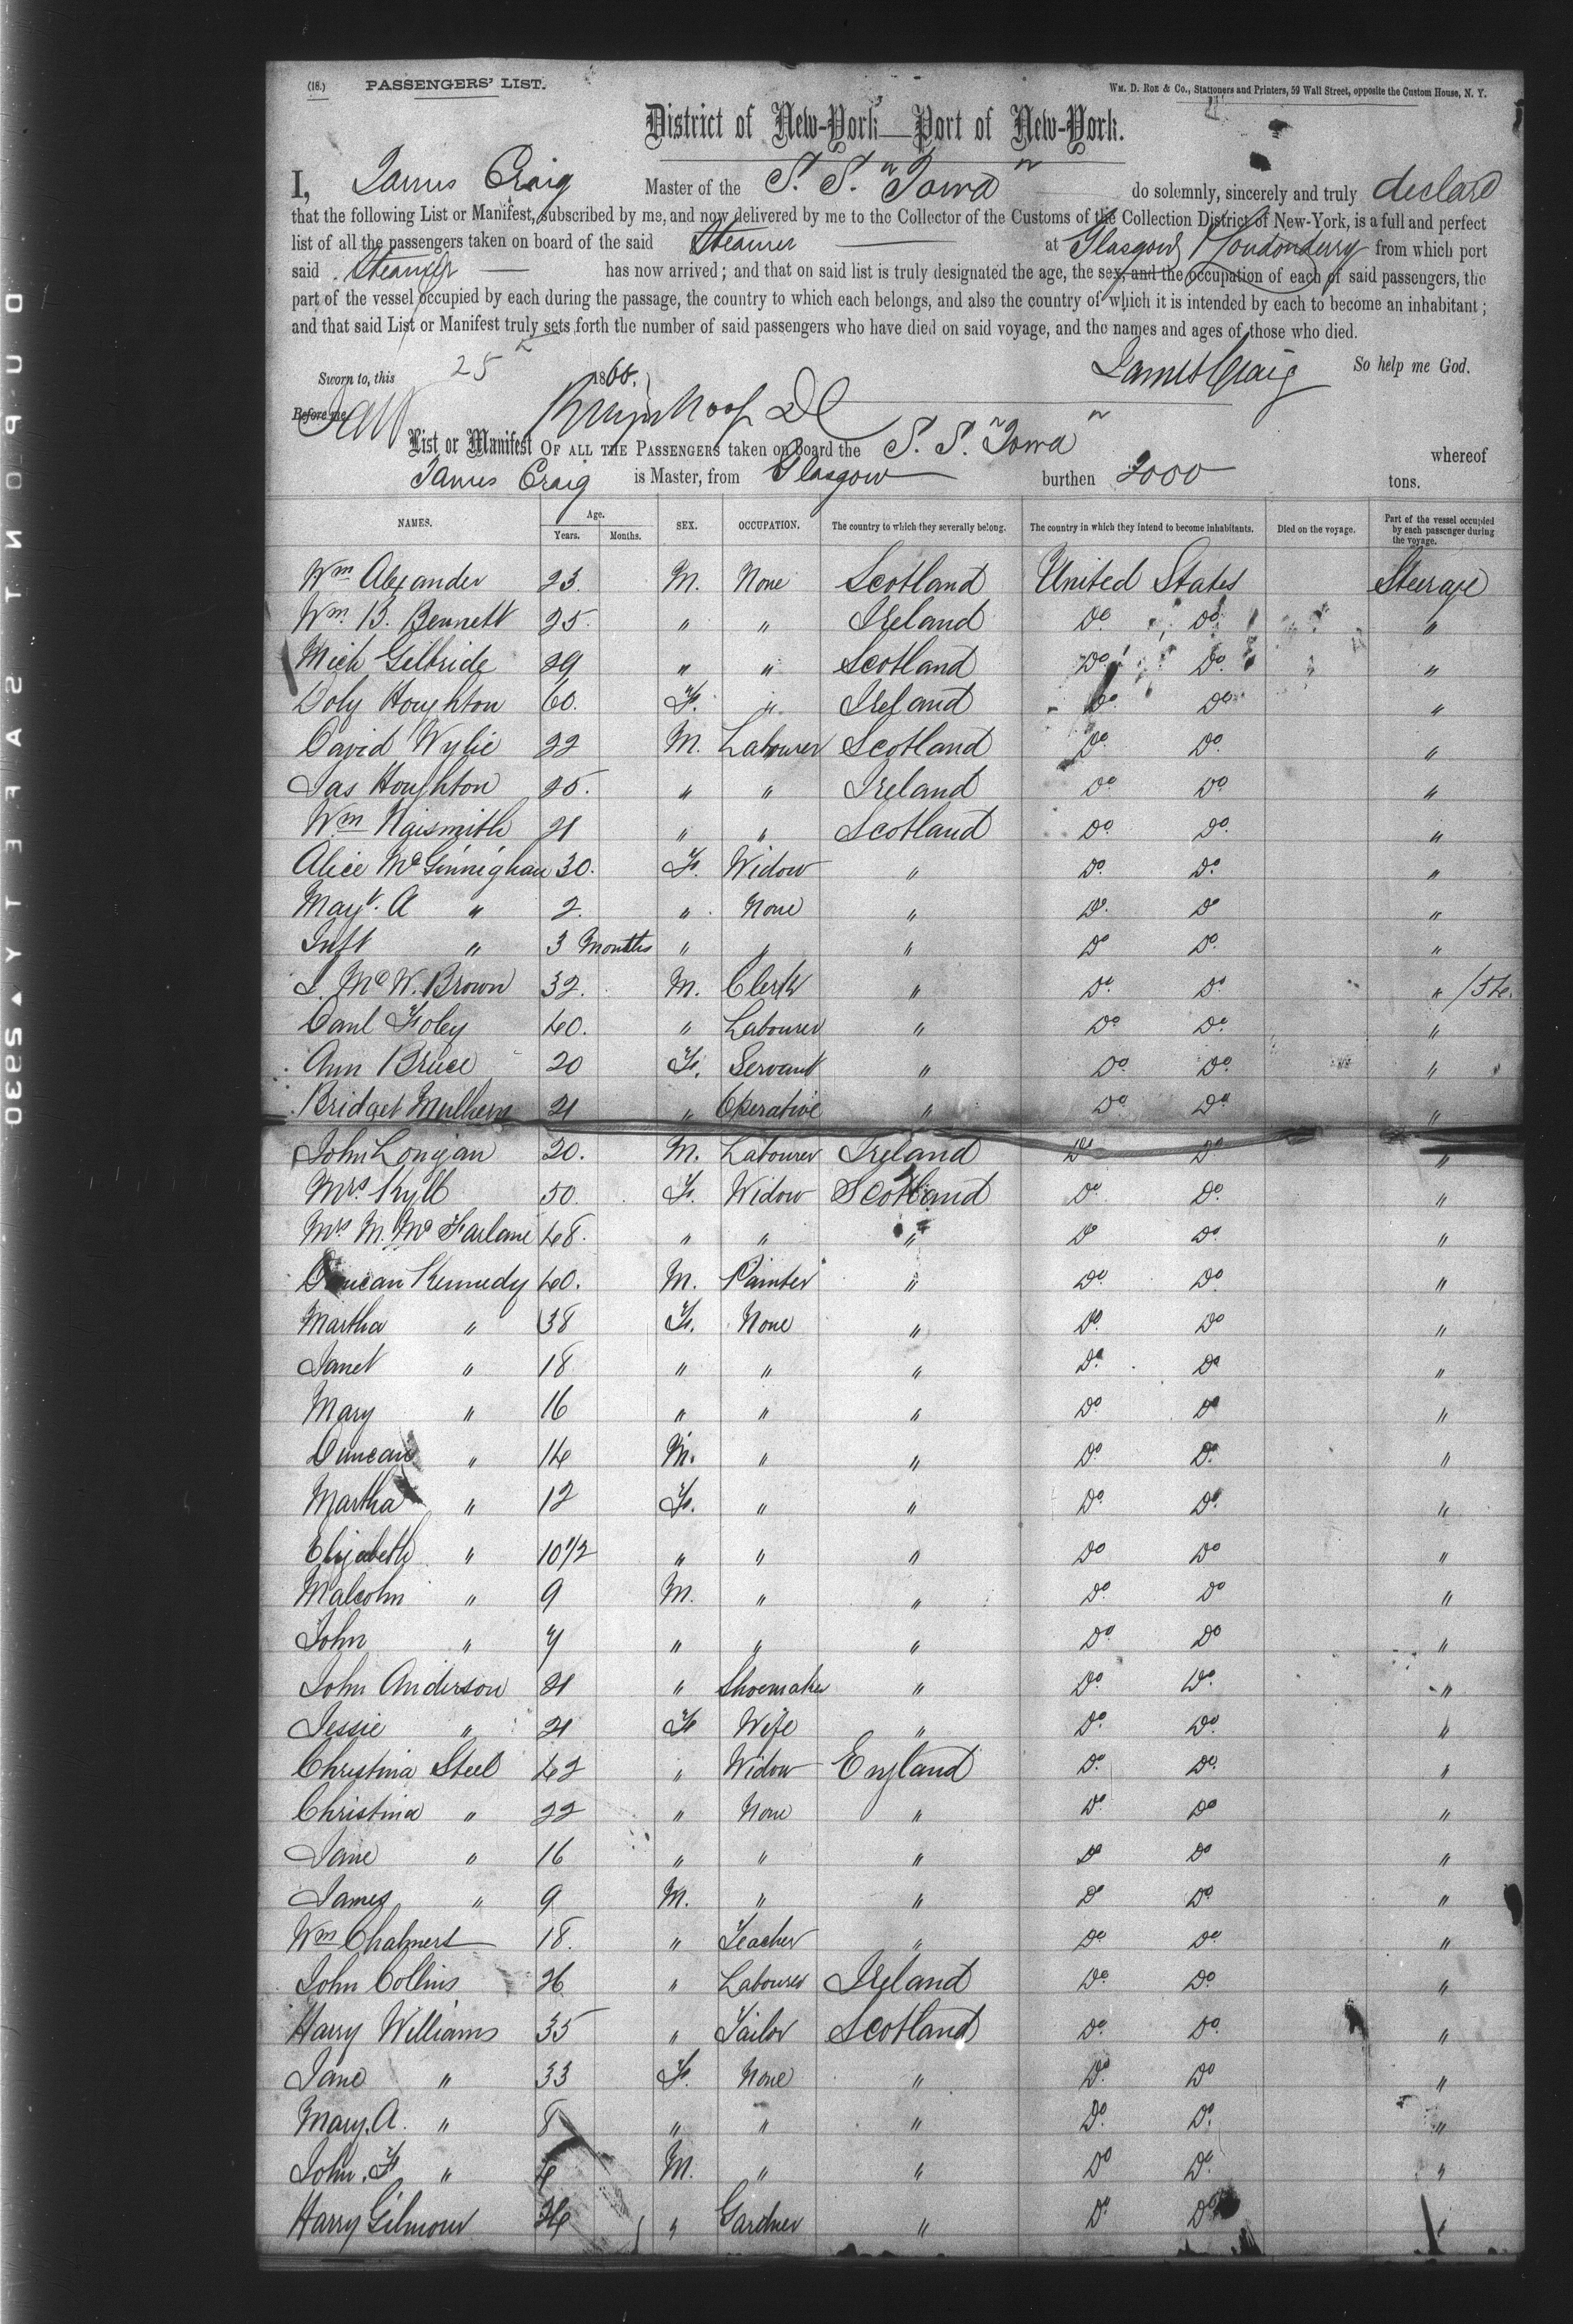 (18.) PASSENGERS' LIST. Wm. D. Roe & Co., Stationers and Printers, 59 Wall Street, opposite the Custom House, N. Y.
District of New-York—Port of New-York.
I, James Craig Master of the S. S. "Iowa" do solemnly, sincerely and truly declare
that the following List or Manifest, subscribed by me, and now delivered by me to the Collector of the Customs of the Collection District of New-York, is a full and perfect
list of all the passengers taken on board of the said Steamer at Glasgow & Londonderry from which port
said Steamer has now arrived; and that on said list is truly designated the age, the sex, and the occupation of each of said passengers, the
part of the vessel occupied by each during the passage, the country to which each belongs, and also the country of which it is intended by each to become an inhabitant;
and that said List or Manifest truly sets forth the number of said passengers who have died on said voyage, and the names and ages of those who died.
Sworn to, this 25 186 James Craig So help me God.
Before me
List or Manifest OF ALL THE PASSENGERS taken on board the S. S. "Iowa" whereof
James Craig is Master, from Glasgow burthen 2000 tons.
NAMES. Age. Years. Months. SEX. OCCUPATION. The country to which they severally belong. The country in which they intend to become inhabitants. Died on the voyage. Part of the vessel occupied by each passenger during the voyage.
Wm Alexander 23. M. None Scotland United States Steerage
Wm. B. Bennett 25. " " Ireland Do. Do. "
Mich Gilbride 29 " " Scotland Do. Do. "
Doly Houghton 60. F. " Ireland Do. Do "
David Wylie 22 M. Labourer Scotland Do. Do. "
Jas Houghton 25. " " Ireland Do Do. "
Wm Naismith 21 " " Scotland Do. Do. "
Alice McGinnighan 30. F. Widow " Do. Do. "
Mayt. A " 2. " None " Do. Do "
Inft " 3 Months " " " Do Do. "
J. McW. Brown 32. M. Clerk " Do. Do. "
Danl Foley 40. " Labourer " Do Do. "
Ann Bruce 20 F. Servant " Do Do. "
Bridget Mulhern 21 " Operative " Do Do "
John Longan 20. M. Labourer Ireland Do Do "
Mrs. Kyll 50. F. Widow Scotland Do Do. "
Mrs M. McFarlane 48. " " " Do Do. "
Duncan Kennedy 40. M. Painter " Do Do "
Martha " 38 F. None " Do. Do "
Janet " 18 " " " Do. Do "
Mary " 16 " " " Do Do "
Duncan " 14 M. " " Do Do. "
Martha " 12 F. " " Do. Do. "
Elizabeth " 10 1/2 " " " Do Do "
Malcolm " 9 M. " " Do. Do "
John " 7 " " " Do Do "
John Anderson 21 " Shoemaker " Do. Do. "
Jessie " 21 F Wife " Do. Do. "
Christina Steel 42 " Widow England Do. Do. "
Christina " 22 " None " Do. Do "
Jane " 16 " " " Do Do "
James " 9 M. " " Do Do "
Wm Chalmers 18. " Teacher " Do Do "
John Collins 26 " Labourer Ireland Do. Do. "
Harry Williams 35 " Tailor Scotland Do. Do. "
Jane " 33 F. None " Do. Do "
Mary. A. " 8 " " " Do. Do. "
John. F " 4 M. " " Do Do. "
Harry Gilmour 24 " Gardner " Do. Do "